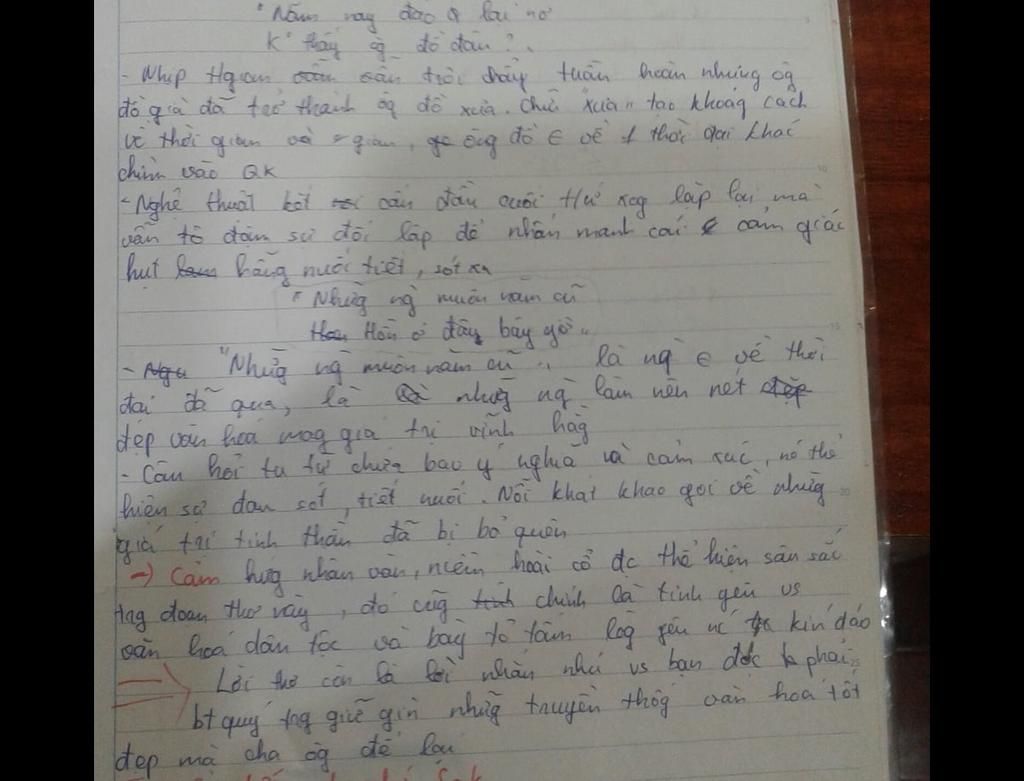 "Năm nay đào q lại nở
K° thấy ôg đồ đâu?"
- Nhịp tgian vẫn trôi chảy tuần hoàn nhưng ôg
đồ già đã trở thành ôg đồ xưa. Chữ "xưa" tạo khoảg cách
về thời gian và gian, ôg đồ ∈ về 1 thời đại khác
chìm vào QK
- Nghệ thuật kết cấu đầu cuối tứ kog lặp lại mà
vẫn tô đậm sự đối lập để nhấn mạnh cái cảm giác
hụt hẫng nuối tiết, sót xa
"Nhữg ng muôn năm cũ
Hồn ở đây bây giờ"
- "Nhữg ng muôn năm cũ" là ng ∈ về thời
đại đã qua, là nhữg ng làm nên nét
đẹp văn hoá mag giá trị vĩnh hằg
- Câu hỏi tu từ chứa bao ý nghĩa và cảm xúc, nó thể
hiện sự đau sót, tiết nuối. Nỗi khát khao gọi về nhữg
giá trị tinh thần đã bị bỏ quên
→ Cảm hứg nhân văn, niềm hoài cổ đc thể hiện sâu sắc
tng đoạn thơ này, đó cũg chính là tình yêu vs
văn hoá dân tộc và bày tỏ tấm lòg yêu nc kín đáo
Lời thơ còn là lời nhắn nhủ vs bạn đọc phải
bt quý tng giữ gìn nhữg truyền thốg văn hoá tốt
đẹp mà cha ôg để lại